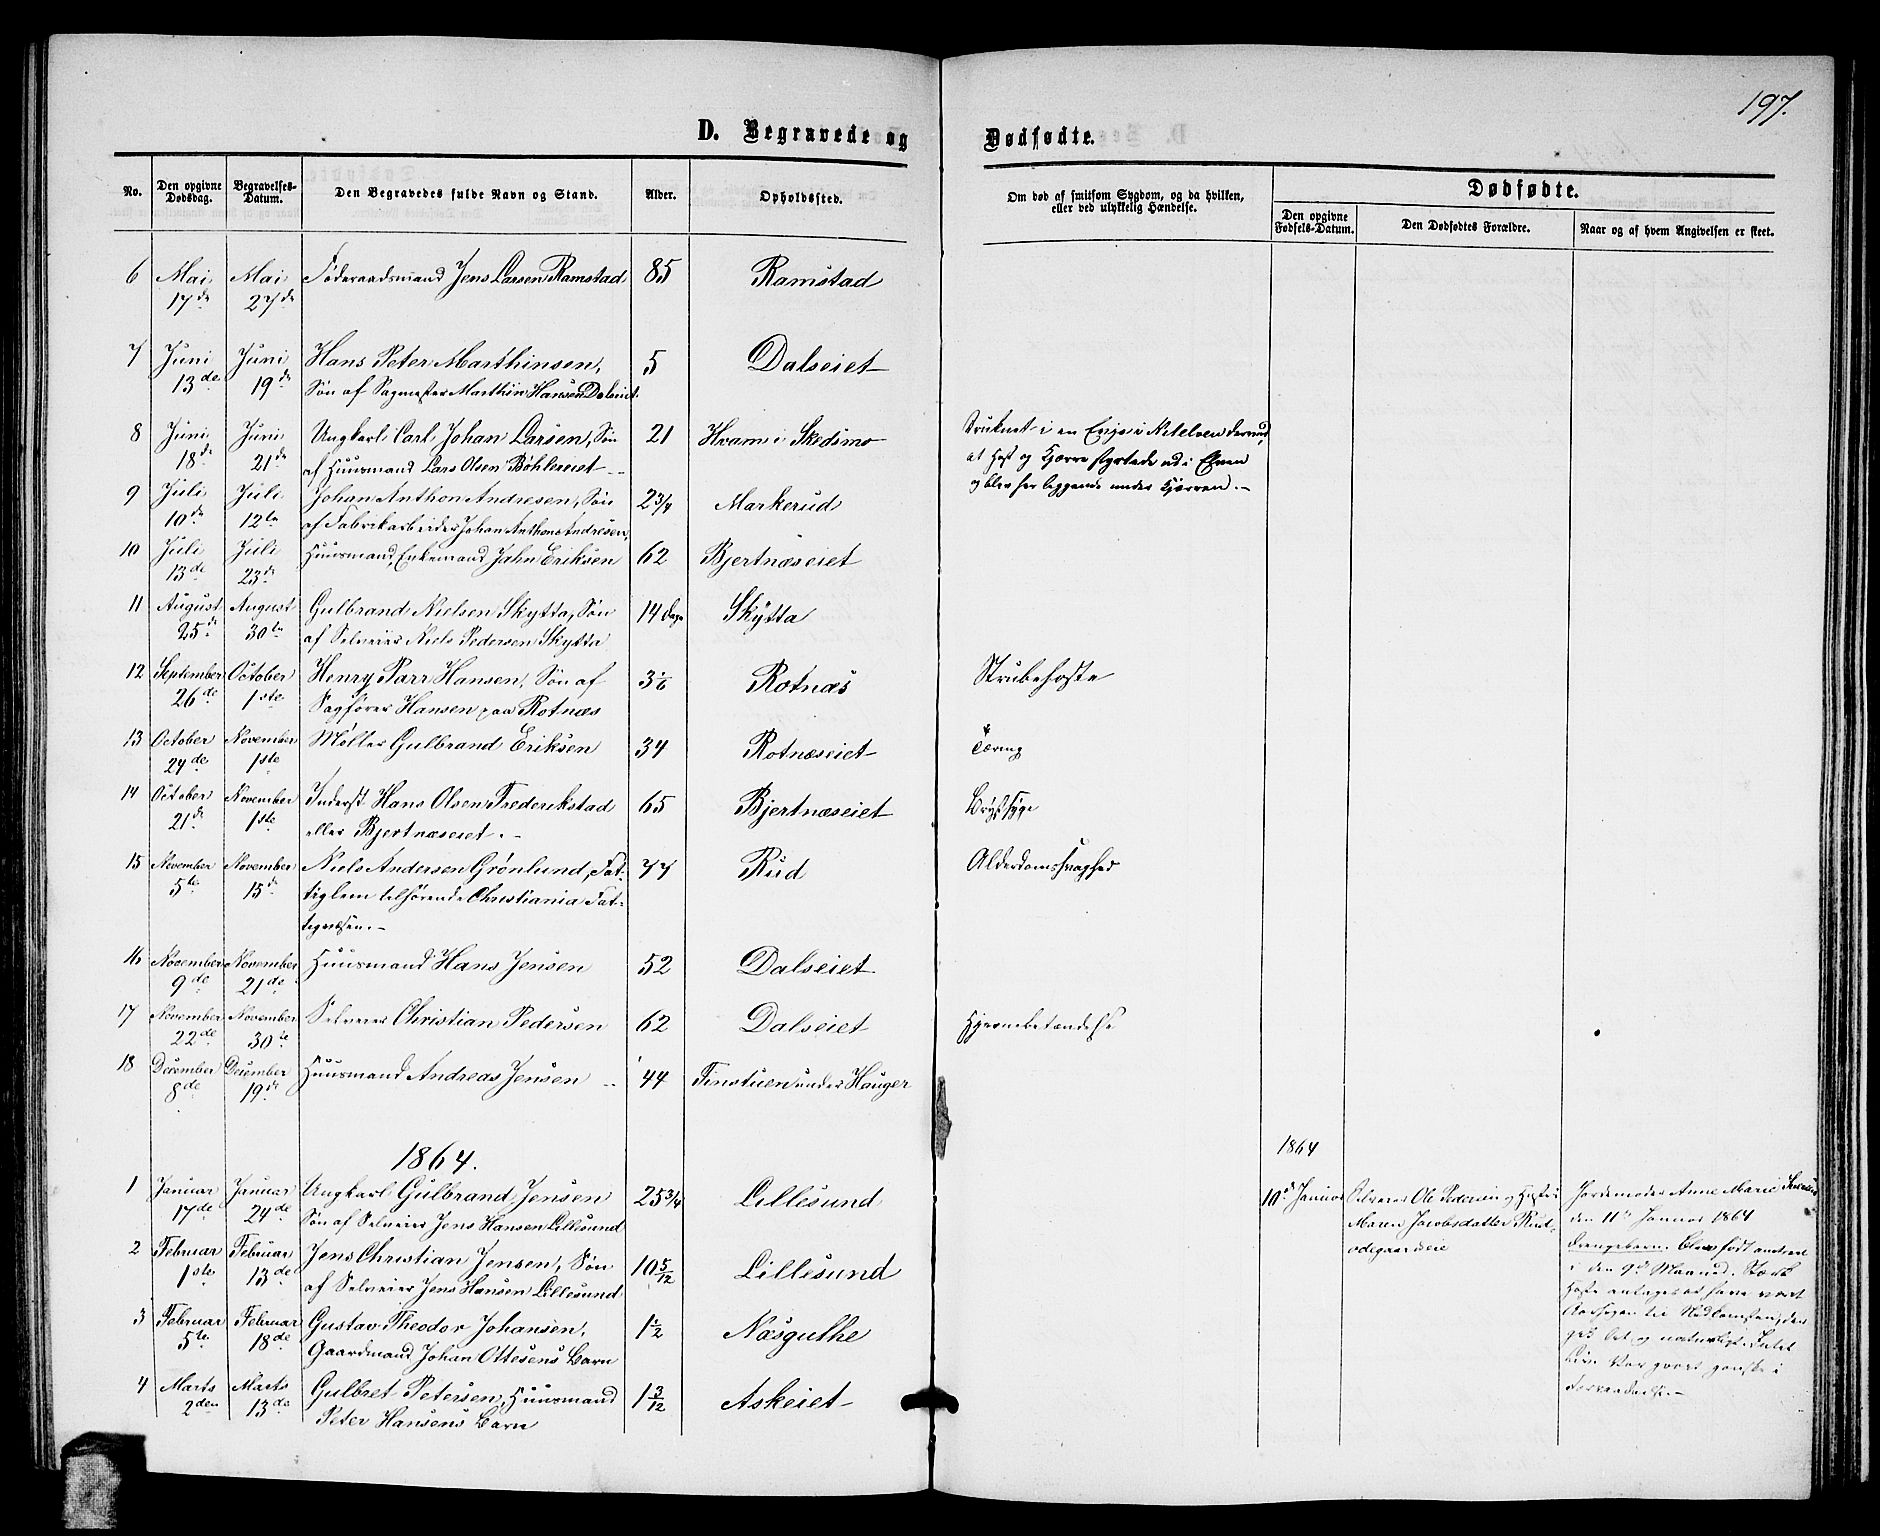 197.
D. Begravede og Dødfødte.
No. Den opgivne Dødsdag. Begravelses-Datum. Den Begravedes fulde Navn og Stand. Alder. Opholdssted. Om død af smitsom Sygdom, og da hvilken, eller ved ulykkelig Hændelse. Dødfødte.
Den opgivne Fødsels-Datum. Den Dødfødtes Forældre. Naar og af hvem Angivelsen er skeet.
6 Mai Mai Føderaadsmand Jens Larsen Ramstad 85 Ramstad
17de 27de
7 Juni Juni Hans Peter Marthinsen, 5 Dalseiet
13de 19de Søn af Sagmester Marthin Hansen Dalseiet.
8 Juni Juni Ungkarl Carl Johan Larsen, Søn 21 Hvam i Skedsmo Druknet i en Evje i Nitelven derved,
18de 21de af Huusmand Lars Olsen Bøhlereiet at Hest og Kjærre styrtede ud i Elven
og blev her liggende under Kjærren.
9 Juli Juli Johan Anthon Andresen, Søn 2 3/4 Markerud
10de 12te af Fabrikarbeider Johan Anthon Andresen,
10 Juli Juli Huusmand, Enkemand Jahn Eriksen 62 Bjertnæseiet
13de 23de
11 August August Gulbrand Nielsen Skytta, Søn 14 Dage Skytta
25de 30te af Selveier Niels Pedersen Skytta
12 September October Henry Parr Hansen, Søn af 3 1/6 Rotnæs Strubehoste
26de 1ste Sagfører Hansen paa Rotnæs
13 October November Møller Gulbrand Eriksen 34 Rotnæseiet Tæring
24de 1ste
14 October November Inderst Hans Olsen Frederikstad 65 Bjertnæseiet Brystsyge
21de 1ste eller Bjertnæseiet.
15 November November Niels Andersen Grønlund, Fat- 77 Rud Alderdomssvaghed
5te 15de tiglem tilhørende Christiania Fat-
tigvæsen.
16 November November Huusmand Hans Jensen 52 Dalseiet
9de 21de
17 November November Selveier Christian Pedersen 62 Dalseiet Hjernebetændelse
22de 30te
18 December December Huusmand Andreas Jensen 44 Tinstuen under Hauger
8de 19de
1864. 1864
1 Januar Januar Ungkarl Gulbrand Jensen 25 3/4 Lillesund 10de Januar Selveier Ole Pedersen og Hustru Jordemoder Anne Marie
17de 24de Søn af Selveier Jens Hansen Lillesund Maren Jacobsdatter Rud- den 11te Januar 1864
ødegaardseie Drengebarn. Blev født
2 Februar Februar Jens Christian Jensen, Søn 10 5/12 Lillesund i den 9de Maaned. Stærk
1ste 13de af Selveier Jens Hansen Lillesund Hoste antages at have været
3 Februar Februar Gustav Theodor Johansen, 1 1/2 Næsguthe Aarsagen til Nedkomsten, der
5te 18de Gaardmand Johan Ottesens Barn gik let og naturligt. Intet
Liv. Var gaaet ganske i
4 Marts Marts Gulbret Petersen, Huusmand 1 3/12 Askeiet Forraadnelse.
2den 13de Peter Hansens Barn